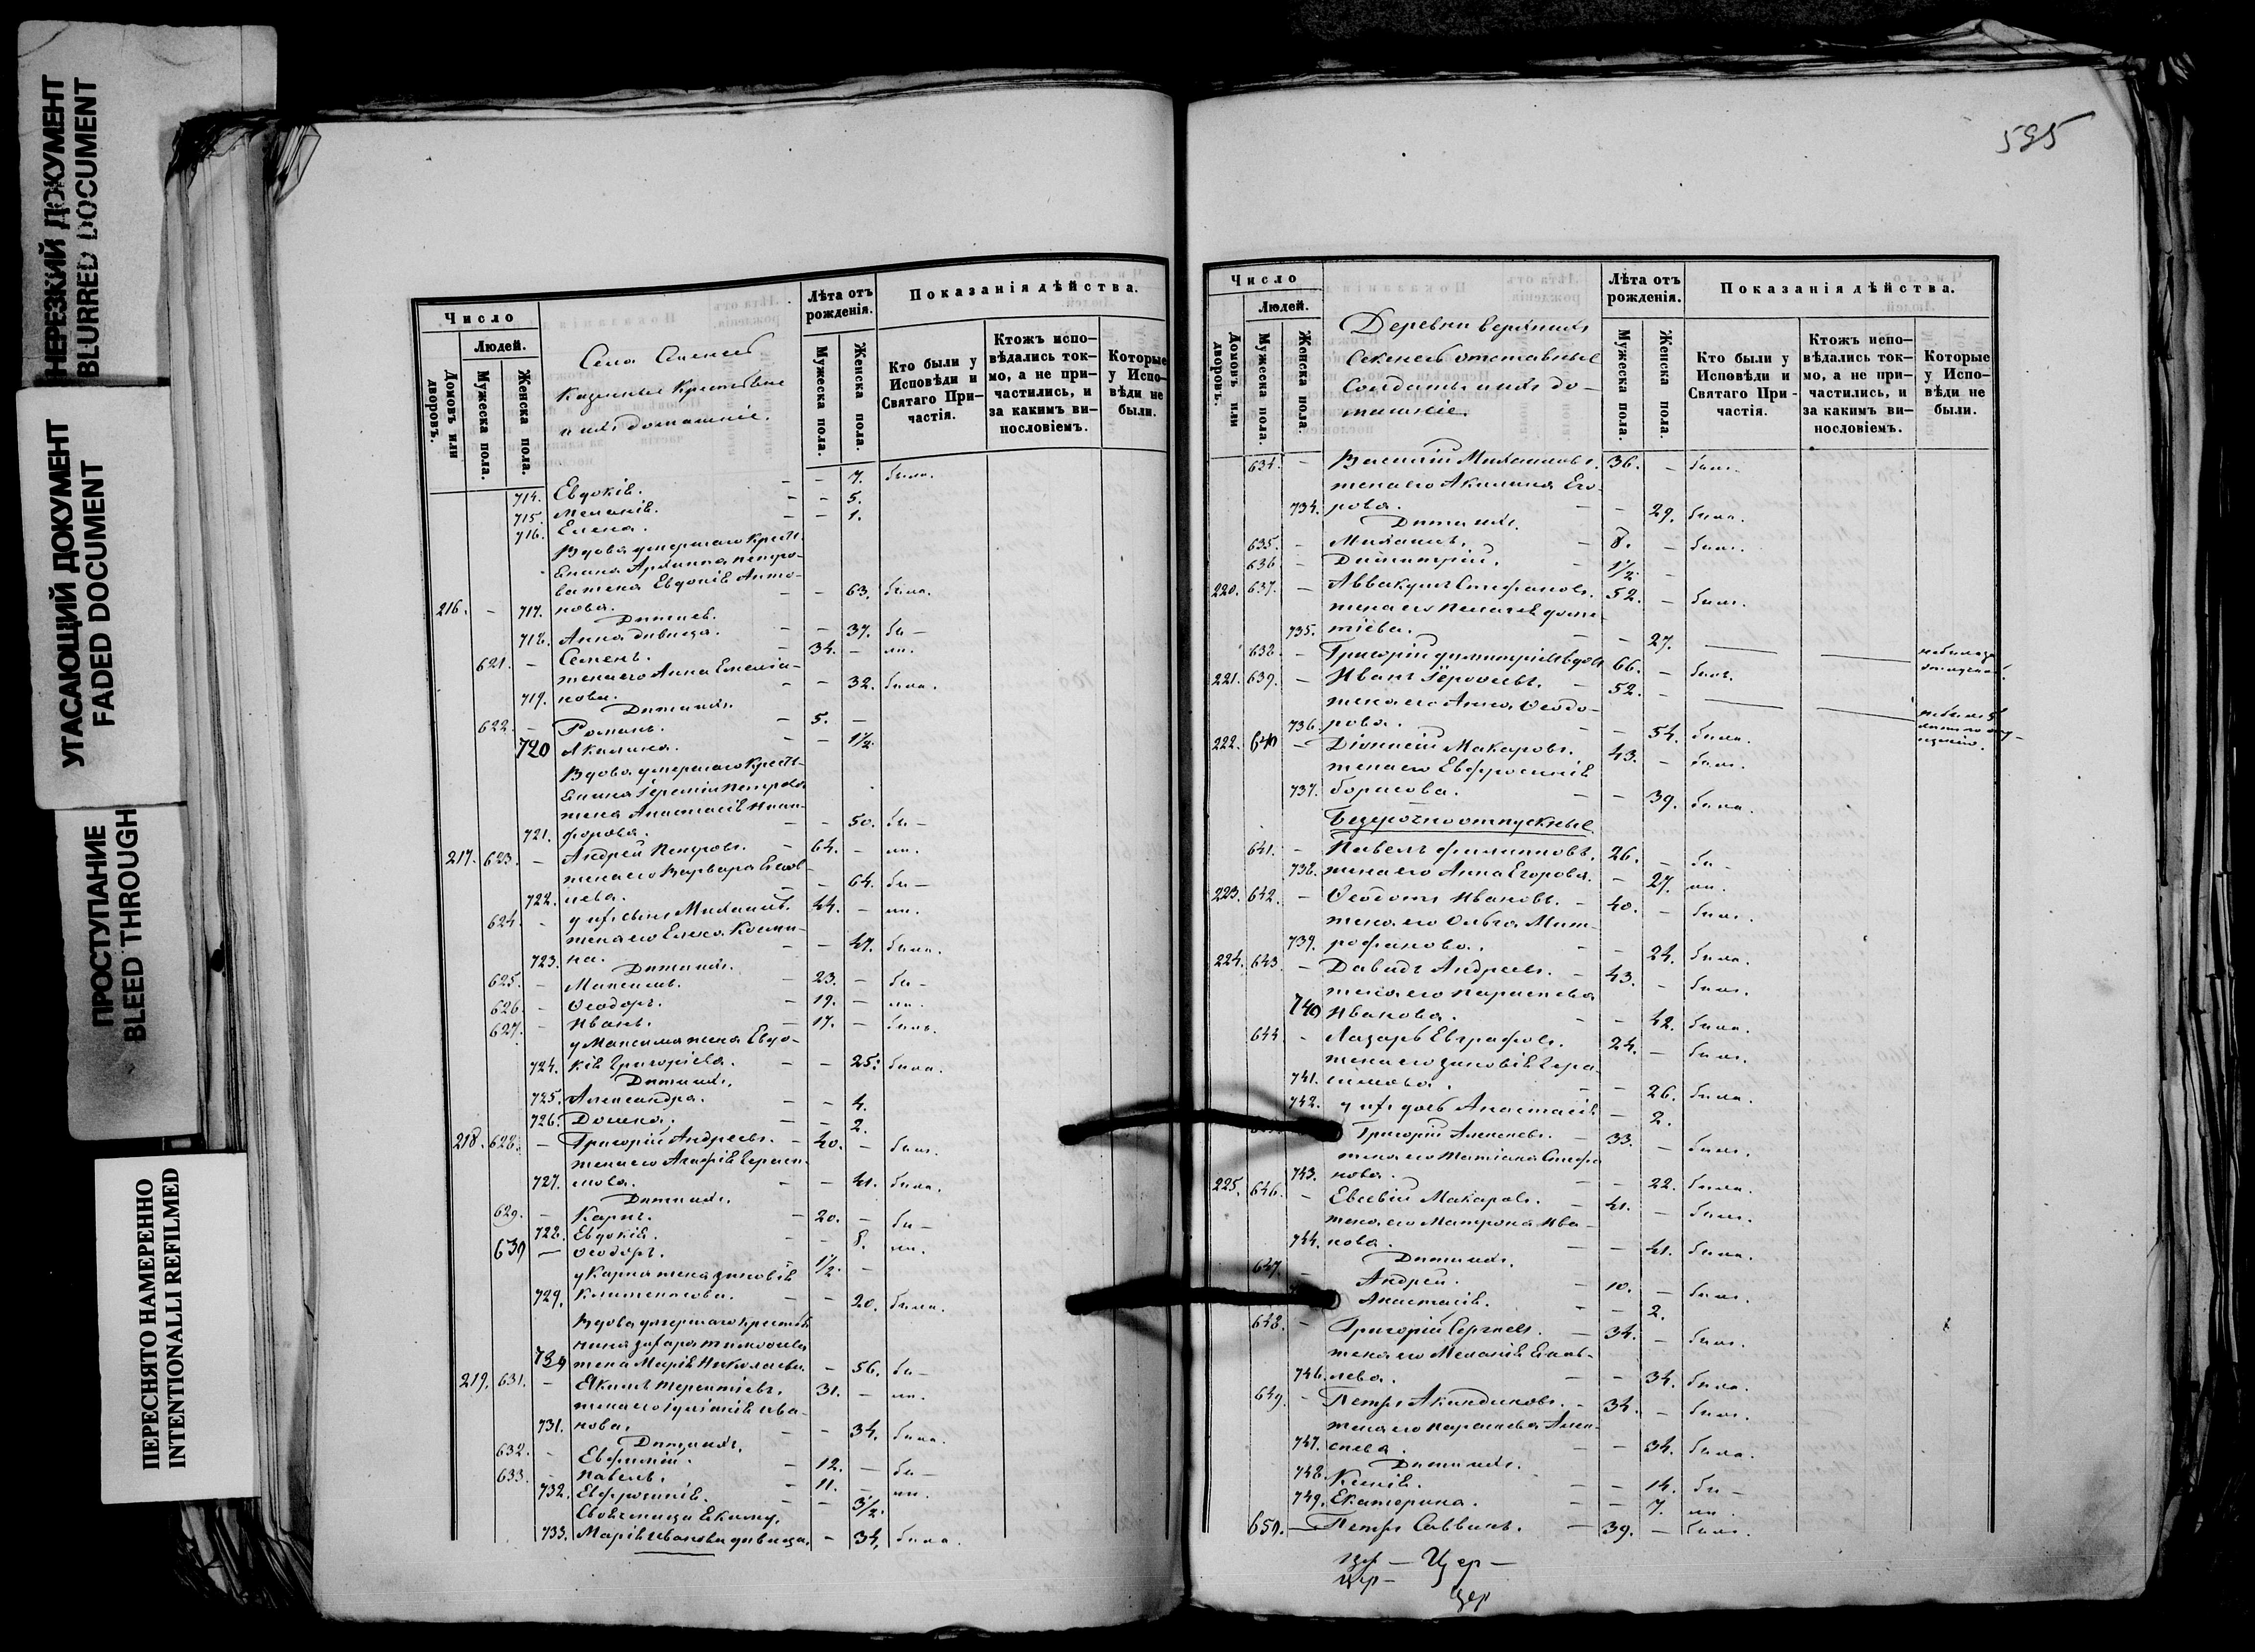 НЕРЕЗКИЙ ДОКУМЕНТ
BLURRED DOCUMENT
УГАСАЮЩИЙ ДОКУМЕНТ
FADED DOCUMENT
ПРОСТУПАНИЕ
BLEED THROUGH
ПЕРЕСНЯТО НАМЕРЕННО
INTENTIONALLI REFILMED
Число
Людей.
Домовъ или дворовъ.
Мужеска пола.
Женска пола.
Лѣта отъ рожденія.
Мужеска пола.
Женска пола.
Показанія дѣйства.
Кто были у Исповѣди и Святаго Причастія.
Ктожъ исповѣдались токмо, а не причастились, и за какимъ винословіемъ.
Которые у Исповѣди не были.
Села
и ихъ домашніе.
714. Евдокія. – – 7. была.
715. Меланія. – – 5.
716. Елена. – – 1.
Вдова умершаго крест
янина Архиппа Петро-
ва жена Евдокія Анто-
216. – 717. нова. – – 63. была.
Дѣти ея.
718. Анна дѣвица. – – 37. бы –
621. – Семенъ. – 34. – ли.
жена его Анна Емелья-
719. нова. – – 32. была.
Дѣти ихъ.
622. – Романъ. – 5. –
720 Акилина. – – 1½.
Вдова умершаго крест-
янина Іереміи Петрова
жена Анастасія Ники-
721. форова. – – 50. бы –
217. 623. – Андрей Петровъ. – 64. – ли.
жена его Варвара
722. – 64. бы –
624. – у нихъ сынъ Михаилъ. 44. – ли.
жена его Елена Козьми-
723. на. – – 47. была.
Дѣти ихъ.
625. – Максимъ. – 23. – бы –
626. – Ѳеодоръ. – 19. – ли.
627. – Иванъ. – 17. – былъ.
у Максима жена Евдо-
724. кія Григоріева. – – 25. была.
Дѣти ихъ.
725. Александра. – – 4.
726. Домна. – – 2.
218. 628. – Григорій Андреевъ. – 40. – былъ.
жена его Агафія Гераси-
727. мова. – – 41. была.
Дѣти ихъ.
629. – Карпъ. – 20. – бы –
728. Евдокія. – – 8. ли.
630 – Ѳеодоръ. ½. –
у Карпа жена Зиновія
729. Климентова. – – 20. была.
Вдова умершаго крестья
нина Захара Тимоѳеева
730 жена Марія Николаева – 56. бы –
219. 631. – Якимъ Терентіевъ. 31. – ли.
жена его Іуліанія Ива-
731. нова. – – 34. была.
Дѣти ихъ.
632. – Евфимій. – 12. – бы –
633. – Павелъ. – 11. – ли.
732. Евфросинія. – – 3½.
Своячница Якиму,
733. Марія Иванова дѣвица. – 34. была.
595
Число
Людей.
Домовъ или дворовъ.
Мужеска пола.
Женска пола.
Лѣта отъ рожденія.
Мужеска пола.
Женска пола.
Показанія дѣйства.
Кто были у Исповѣди и Святаго Причастія.
Ктожъ исповѣдались токмо, а не причастились, и за какимъ винословіемъ.
Которые у Исповѣди не были.
Деревни Верхнихъ
отставные
Солдаты и ихъ до-
машніе.
634. – Василій Михаиловъ. 36. – былъ.
жена его Акилина Его-
734. рова. – – 29. была.
Дѣти ихъ.
635. – Михаилъ. – 8. – былъ.
636 – Димитрій. – 1½. –
220. 637. – Аввакумъ Стефановъ. 52. – былъ.
жена его Пелагія
735. – – 27.
638. – Григорій Димитріевъ вдовъ 66. – былъ.
221. 639. – Иванъ 52. –
жена его Анна Ѳеодо-
736. рова. – – 54. была.
222. 640 – Діонисій Макаровъ. 43. – былъ.
жена его Евфросинія
737. Борисова. – – 39. была.
Безсрочно отпускные
641. – Павелъ Филипповъ. 26. – бы –
738. жена его Анна Егорова. – 27. ли.
223. 642. – Ѳеодотъ Ивановъ. – 40. – былъ.
жена его Ольга Мит-
739. рофанова. – – 24. была.
224. 643. – Давидъ Андреевъ. – 43. – былъ.
жена его Параскева
740 Иванова. – – 42. была.
644 – Лазарь Евграфовъ. 24. – былъ.
жена его Зиновія Гера-
741. симова. – – 26. была.
742. у нихъ дочь Анастасія – 2.
Григорій Алексеевъ. – 33. – былъ.
жена его Татіана Стефа
743. нова. – – 22. была.
225. 646. – Евсевій Макаровъ. – 41. – былъ.
жена его Матрона Ива-
744. нова. – – 41. была.
Дѣти ихъ.
647. – Андрей. – 10. – былъ.
Анастасія. – – 2.
648. – Григорій Сергеевъ. – 34. – былъ.
жена его Меланія
746. – – 34. была.
649. – Петръ Акиндиновъ. – 34. – былъ.
жена его Параскева Алек-
747. сеева. – – 34. была.
Дѣти ихъ.
748. Ксенія. – – 14. бы –
749. Екатерина. – – 7. ли.
650. – Петръ Саввинъ. – 39. – былъ.